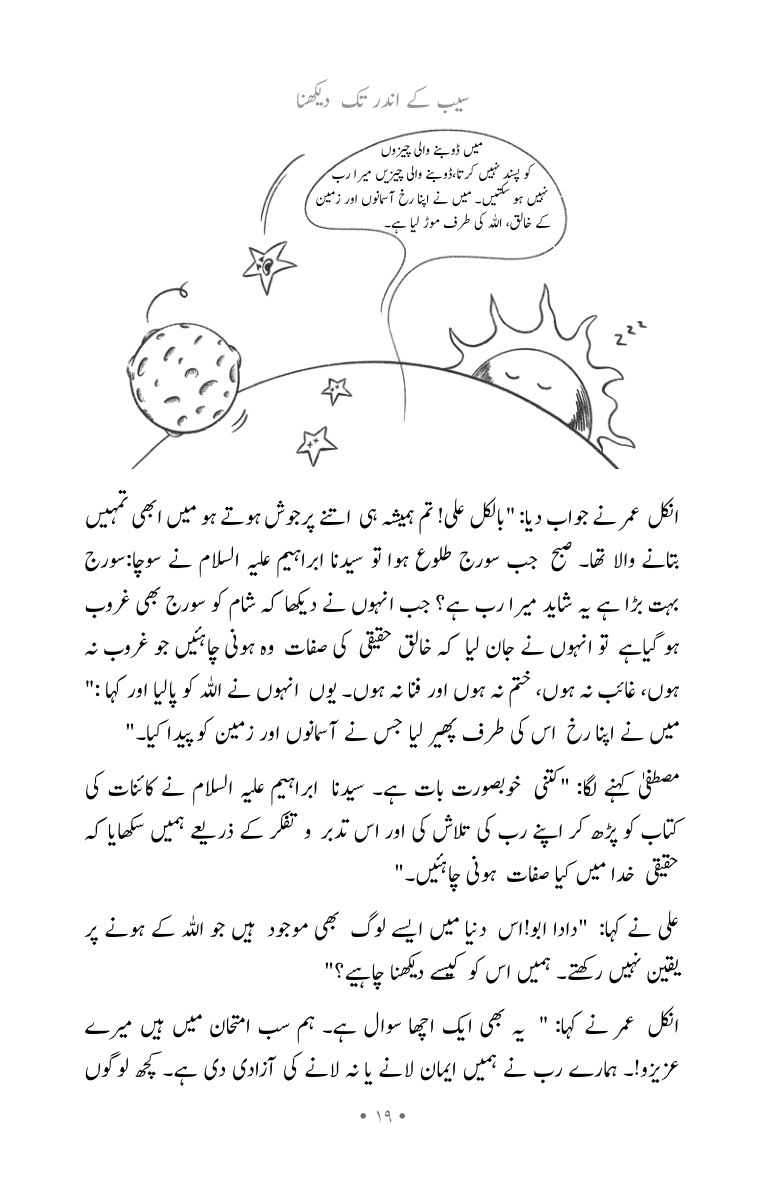 سیب کے اندر تک دیکھنا
میں ڈوبنے والی چیزوں
کو پسند نہیں کرتا،ڈوبنے والی چیزیں میرا رب
نہیں ہو سکتیں۔ میں نے اپنا رخ آسمانوں اور زمین
کے خالق، اللہ کی طرف موڑ لیا ہے۔
zzz
انکل عمر نے جواب دیا: "بالکل علی! تم ہمیشہ ہی اتنے پرجوش ہوتے ہو میں ابھی تمہیں
بتانے والا تھا۔ صبح جب سورج طلوع ہوا تو سیدنا ابراہیم علیہ السلام نے سوچا:سورج
بہت بڑا ہے یہ شاید میرا رب ہے؟ جب انہوں نے دیکھا کہ شام کو سورج بھی غروب
ہو گیاہے تو انہوں نے جان لیا کہ خالق حقیقی کی صفات وہ ہونی چاہئیں جو غروب نہ
ہوں، غائب نہ ہوں، ختم نہ ہوں اور فنا نہ ہوں۔ یوں انہوں نے اللہ کو پالیا اور کہا :"
میں نے اپنا رخ اس کی طرف پھیر لیا جس نے آسمانوں اور زمین کو پیدا کیا۔"
مصطفیٰ کہنے لگا: "کتنی خوبصورت بات ہے۔ سیدنا ابراہیم علیہ السلام نے کائنات کی
کتاب کو پڑھ کر اپنے رب کی تلاش کی اور اس تدبر و تفکر کے ذریعے ہمیں سکھایا کہ
حقیقی خدا میں کیا صفات ہونی چاہئیں۔"
علی نے کہا: "دادا ابو!اس دنیا میں ایسے لوگ بھی موجود ہیں جو اللہ کے ہونے پر
یقین نہیں رکھتے۔ ہمیں اس کو کیسے دیکھنا چاہیے؟"
انکل عمر نے کہا: " یہ بھی ایک اچھا سوال ہے۔ ہم سب امتحان میں ہیں میرے
عزیزو!۔ ہمارے رب نے ہمیں ایمان لانے یا نہ لانے کی آزادی دی ہے۔ کچھ لوگوں
• ١٩ •